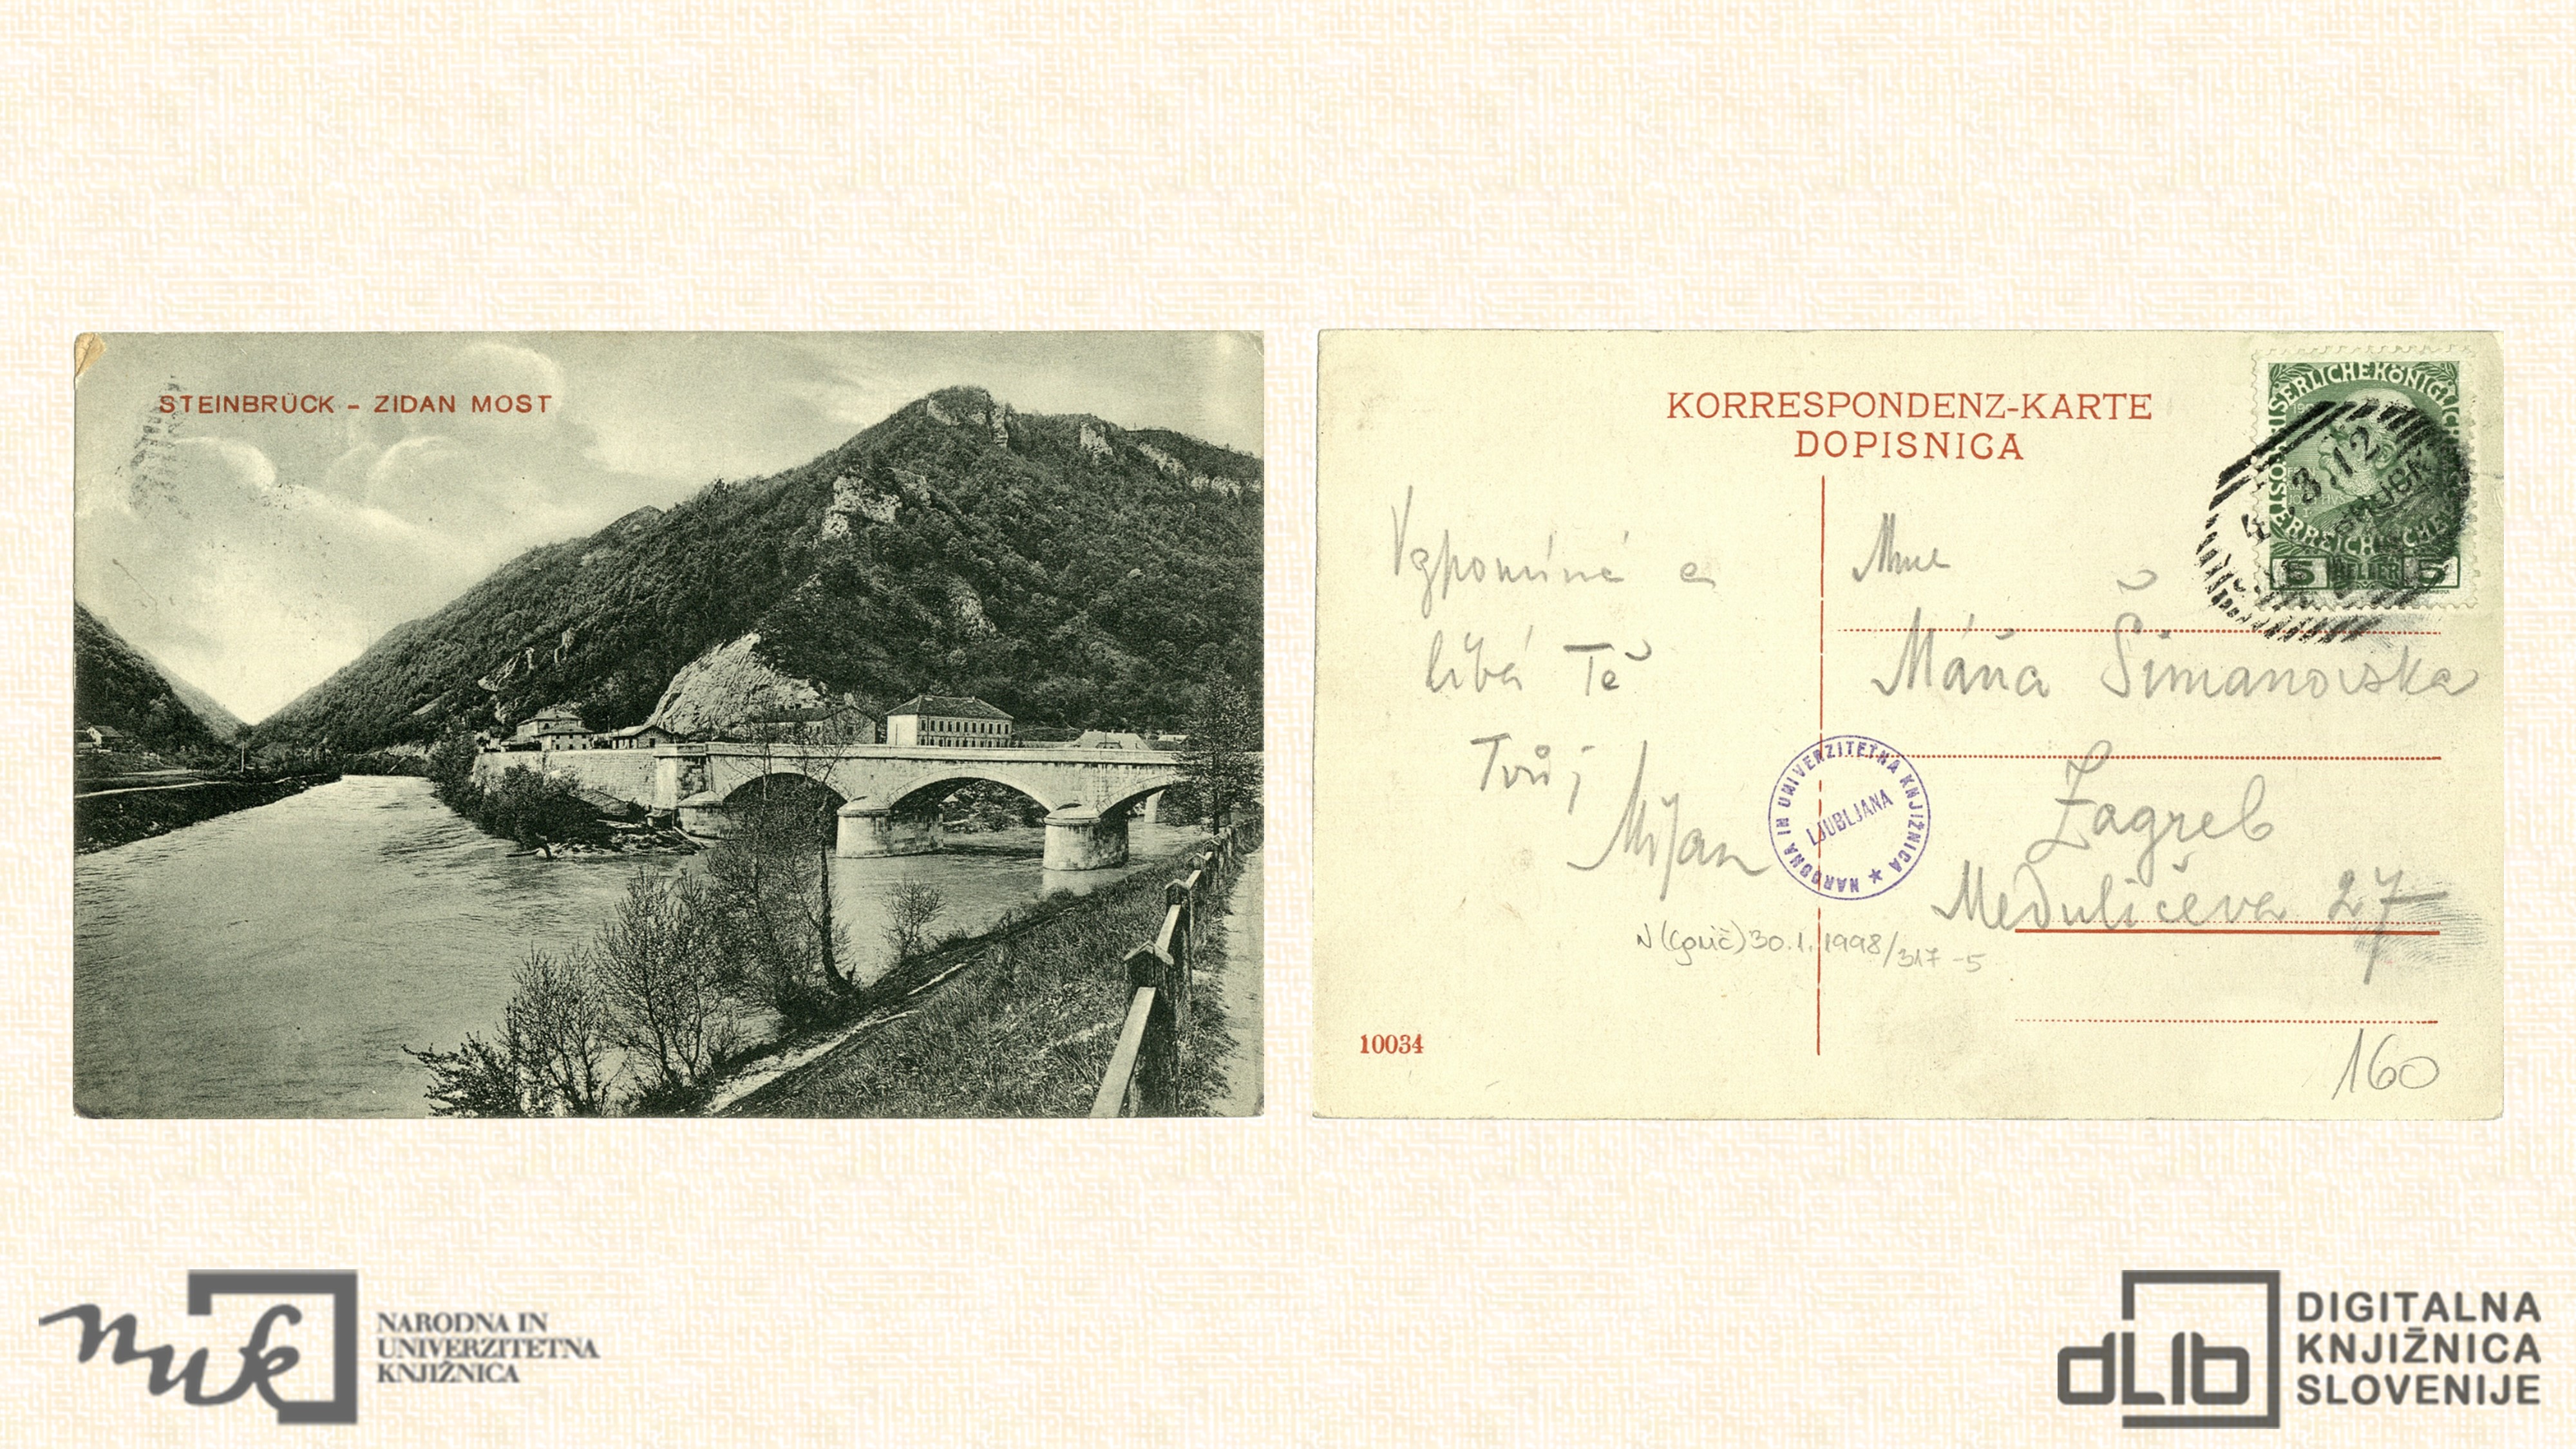 STEINBRÜCK - ZIDAN MOST
KORRESPONDENZ-KARTE
DOPISNICA
Vzpomíná a
líbá Tě
Tvůj
Milan
Mme
Máňa Šimanovska
Zagreb
Međulićeva 27
KAISERLICHE KÖNIGLICHE
ÖSTERREICHISCHE
5 HELLER 5
3.12
NARODNA IN UNIVERZITETNA KNJIŽNICA ★
LJUBLJANA
30.1.1998/317-5
10034
160
nuk
NARODNA IN
UNIVERZITETNA
KNJIŽNICA
dLib
DIGITALNA
KNJIŽNICA
SLOVENIJE